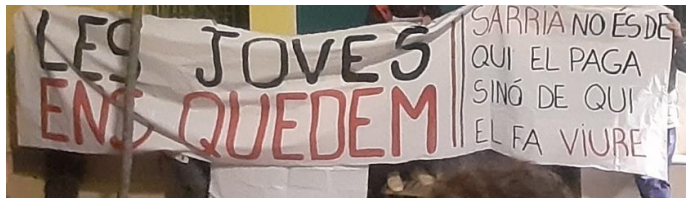 LES JOVES
ENS QUEDEM
SARRIÀ NO ÉS DE
QUI EL PAGA
SINÓ DE QUI
EL FA VIURE